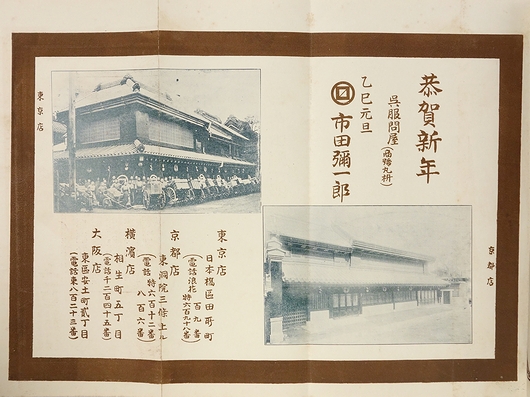 恭賀新年
呉服問屋(商標丸枡)
乙巳元旦
市田彌一郎
京都店
東京店
日本橋區田所町
(電話浪花 百九番
特六百九十八番)
京都店
東洞院三條上ル
(電話 特六百十二番
八百六番)
横濱店
相生町五丁目
(電話千二百四十五番)
大阪店
東區安土町貳丁目
(電話東八百二十三番)
東京店